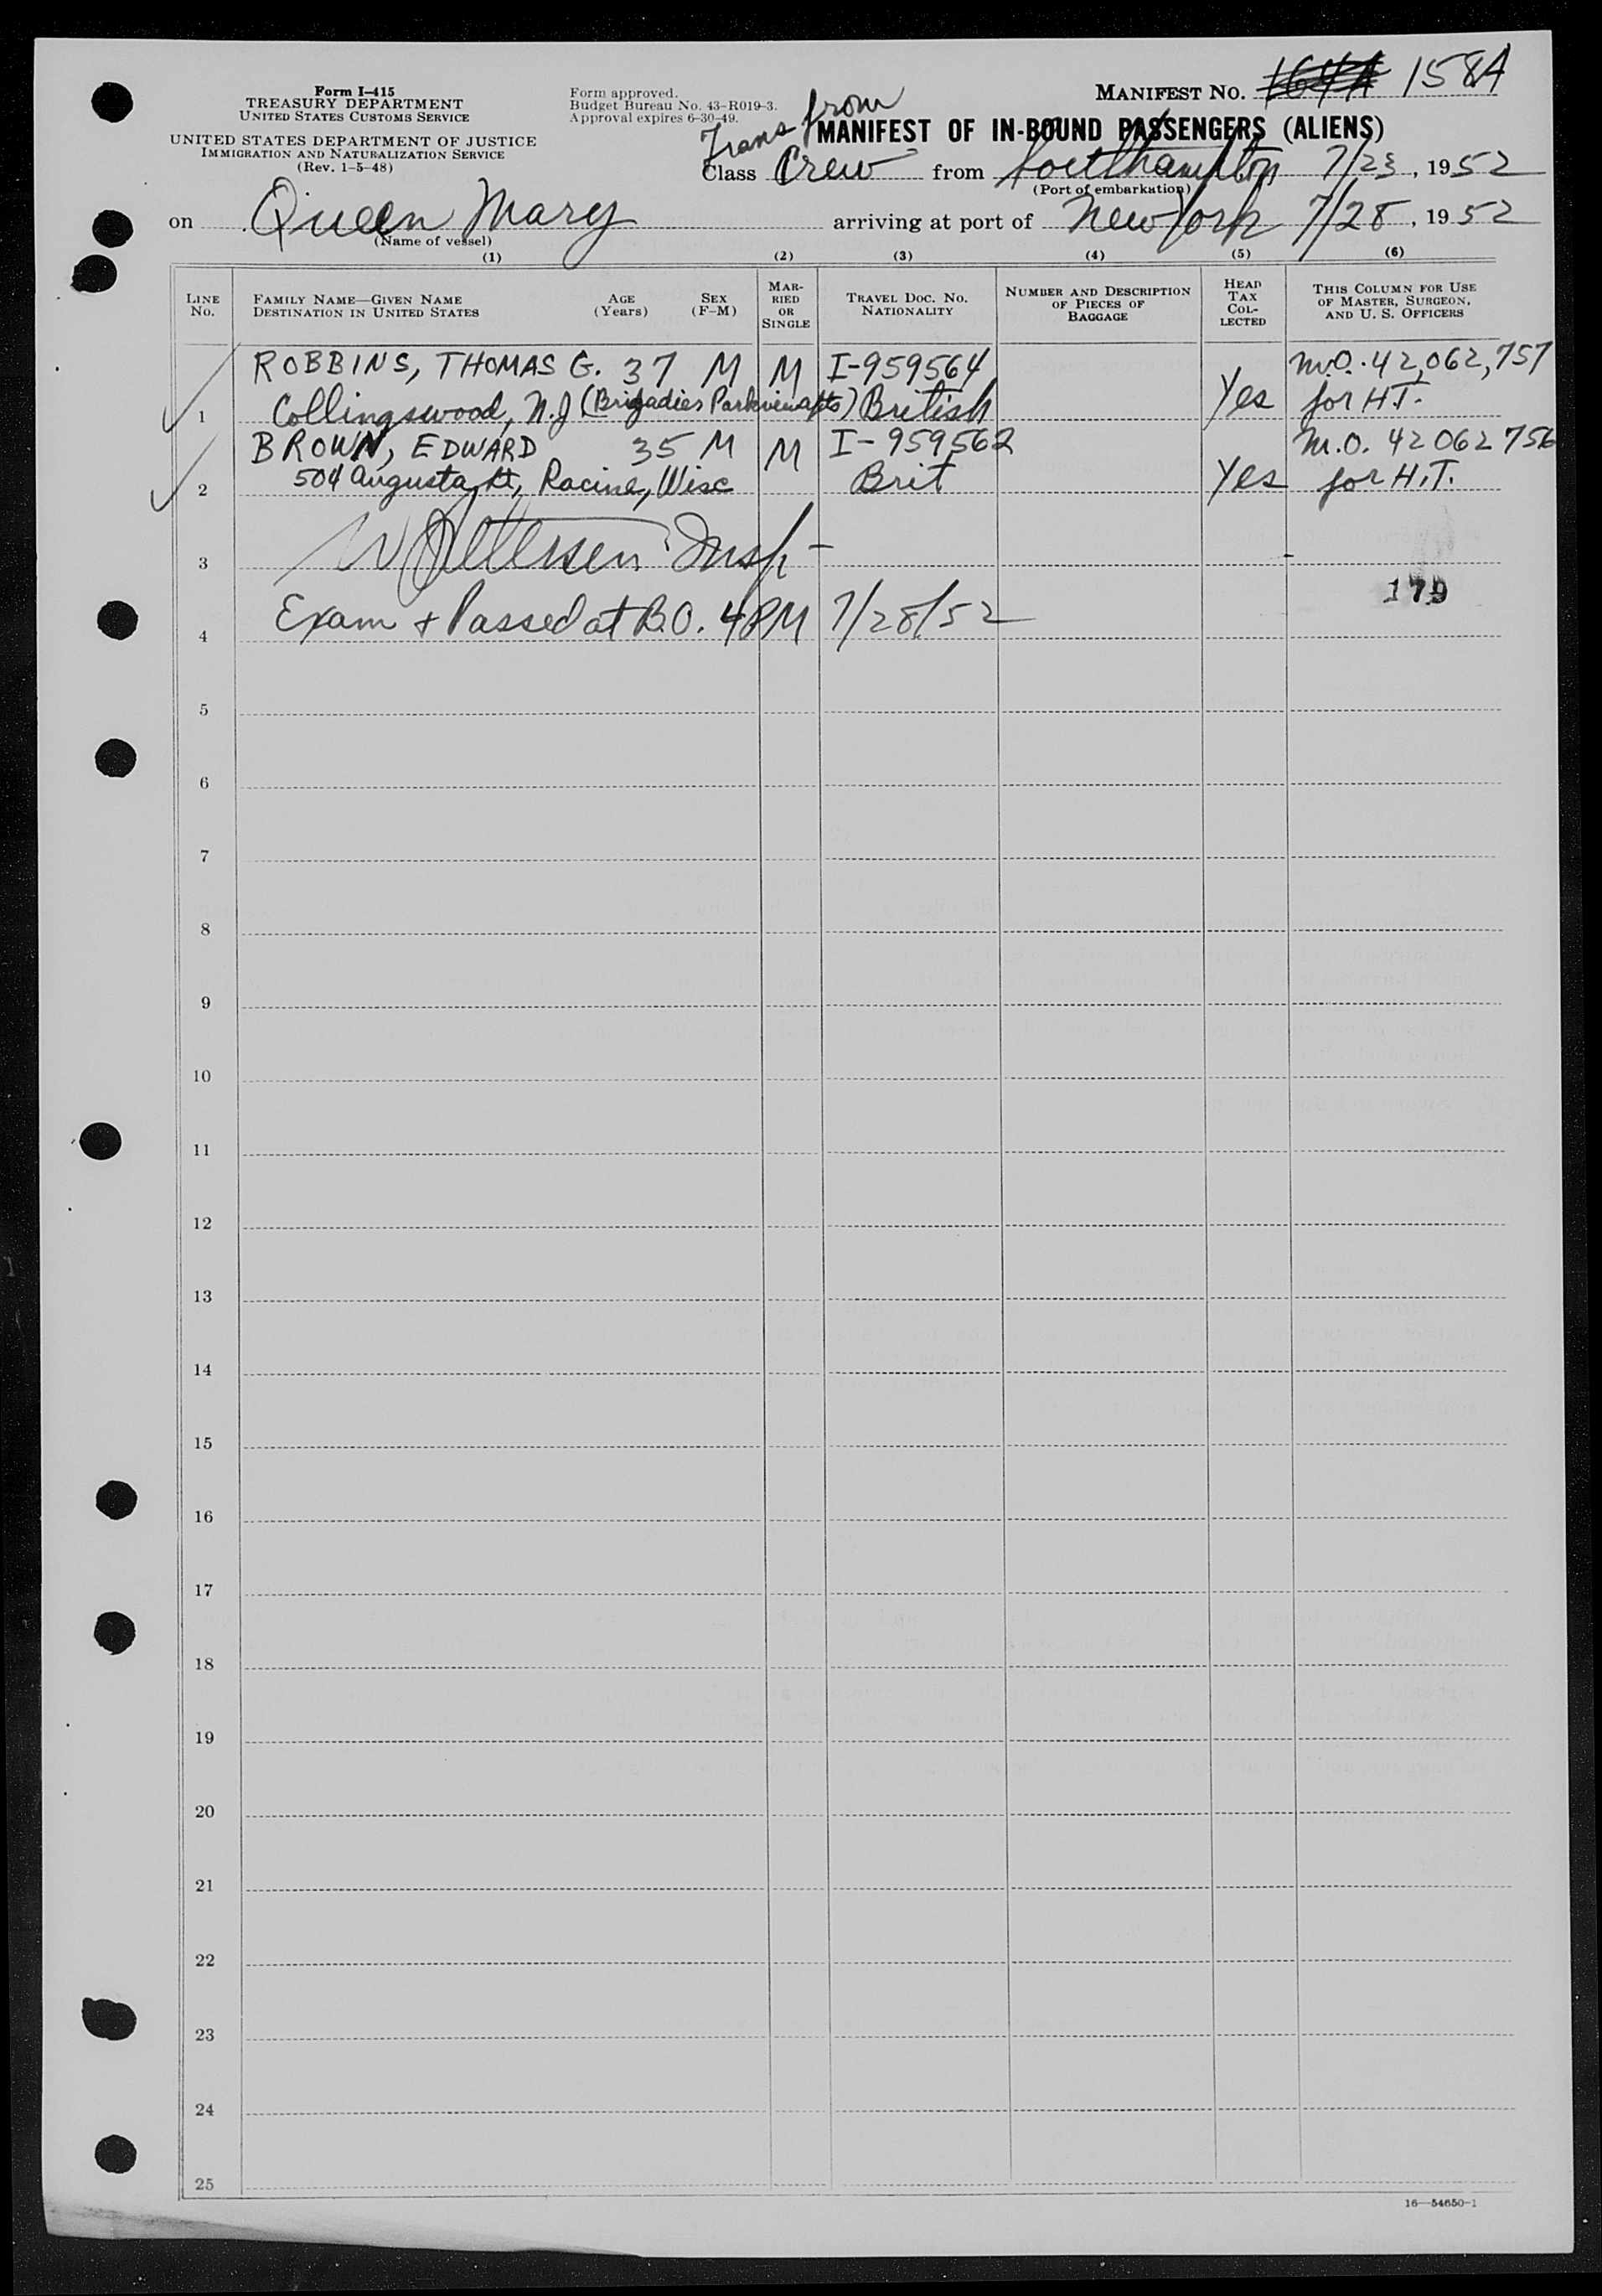 Form I-415
TREASURY DEPARTMENT
UNITED STATES CUSTOMS SERVICE
UNITED STATES DEPARTMENT OF JUSTICE
IMMIGRATION AND NATURALIZATION SERVICE
(Rev. 1-5-48)
Form approved.
Budget Bureau No. 43-R019-3.
Approval expires 6-30-49.
MANIFEST NO. 164A 158A
MANIFEST OF IN-BOUND PASSENGERS (ALIENS)
Trans from
Class Crew from Southampton 7/23, 1952
(Port of embarkation)
on Queen Mary arriving at port of New York 7/28, 1952
(Name of vessel)
(1) (2) (3) (4) (5) (6)
LINE No. FAMILY NAME—GIVEN NAME DESTINATION IN UNITED STATES AGE (Years) SEX (F-M) MARRIED OR SINGLE TRAVEL DOC. NO. NATIONALITY NUMBER AND DESCRIPTION OF PIECES OF BAGGAGE HEAD TAX COLLECTED THIS COLUMN FOR USE OF MASTER, SURGEON, AND U. S. OFFICERS
ROBBINS, THOMAS G. 37 M M I-959564 M.O. 42,062,757
1 Collingswood, N.J (Brigadies Parkview apts) British Yes for H.T.
BROWN, EDWARD 35 M M I-959562 M.O. 42062756
2 504 Augusta St, Racine, Wisc Brit Yes for H.T.
3 Insp -
179
4 Exam + Passed at B.O. 4 PM 7/28/52
5
6
7
8
9
10
11
12
13
14
15
16
17
18
19
20
21
22
23
24
25
16—54650-1